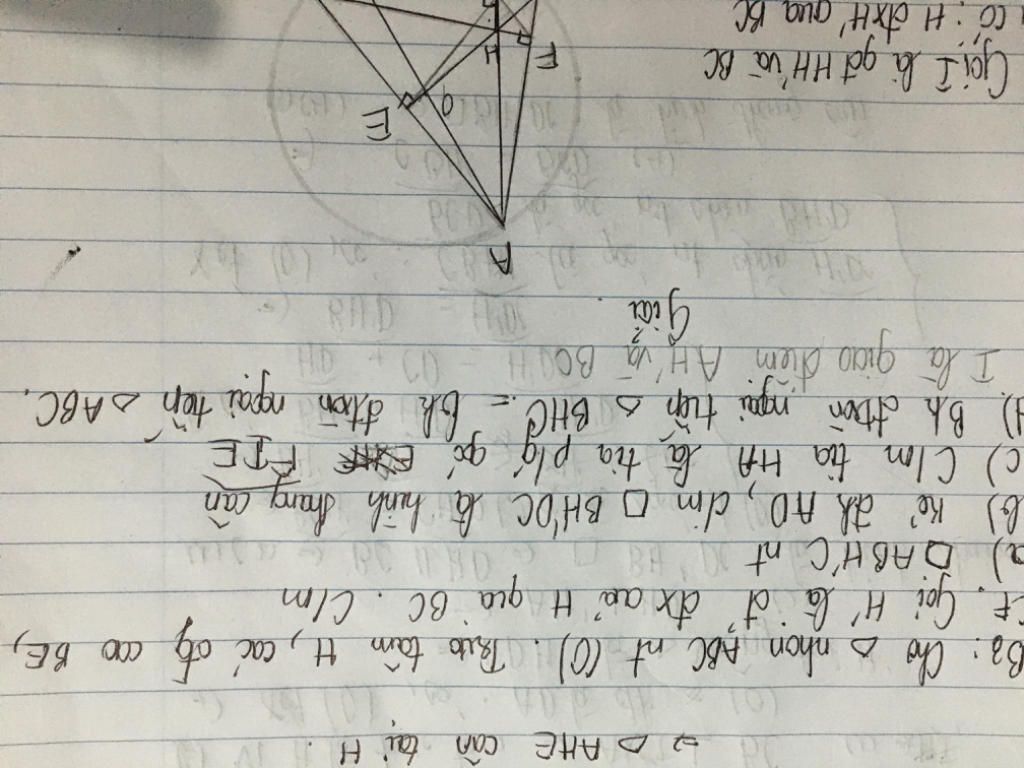 => △ AHE cân tại H.
B2: Cho △ nhọn ABC nt (O). Trực tâm H, các đg cao BE,
CF. Gọi H' là đ' đx của H qua BC. C/m
a) □ ABH'C nt
b) Kẻ đk AD, c/m □ BH'DC là hình thang cân
c) C/m tia HA là tia p/g góc FIE
d). Bk đtròn ngoại tiếp △ BHC = Bk đtròn ngoại tiếp △ ABC.
I là giao điểm AH' và BC
Giải
A
E
O
F
H
Gọi I là gđ HH' và BC
có: H đx H' qua BC